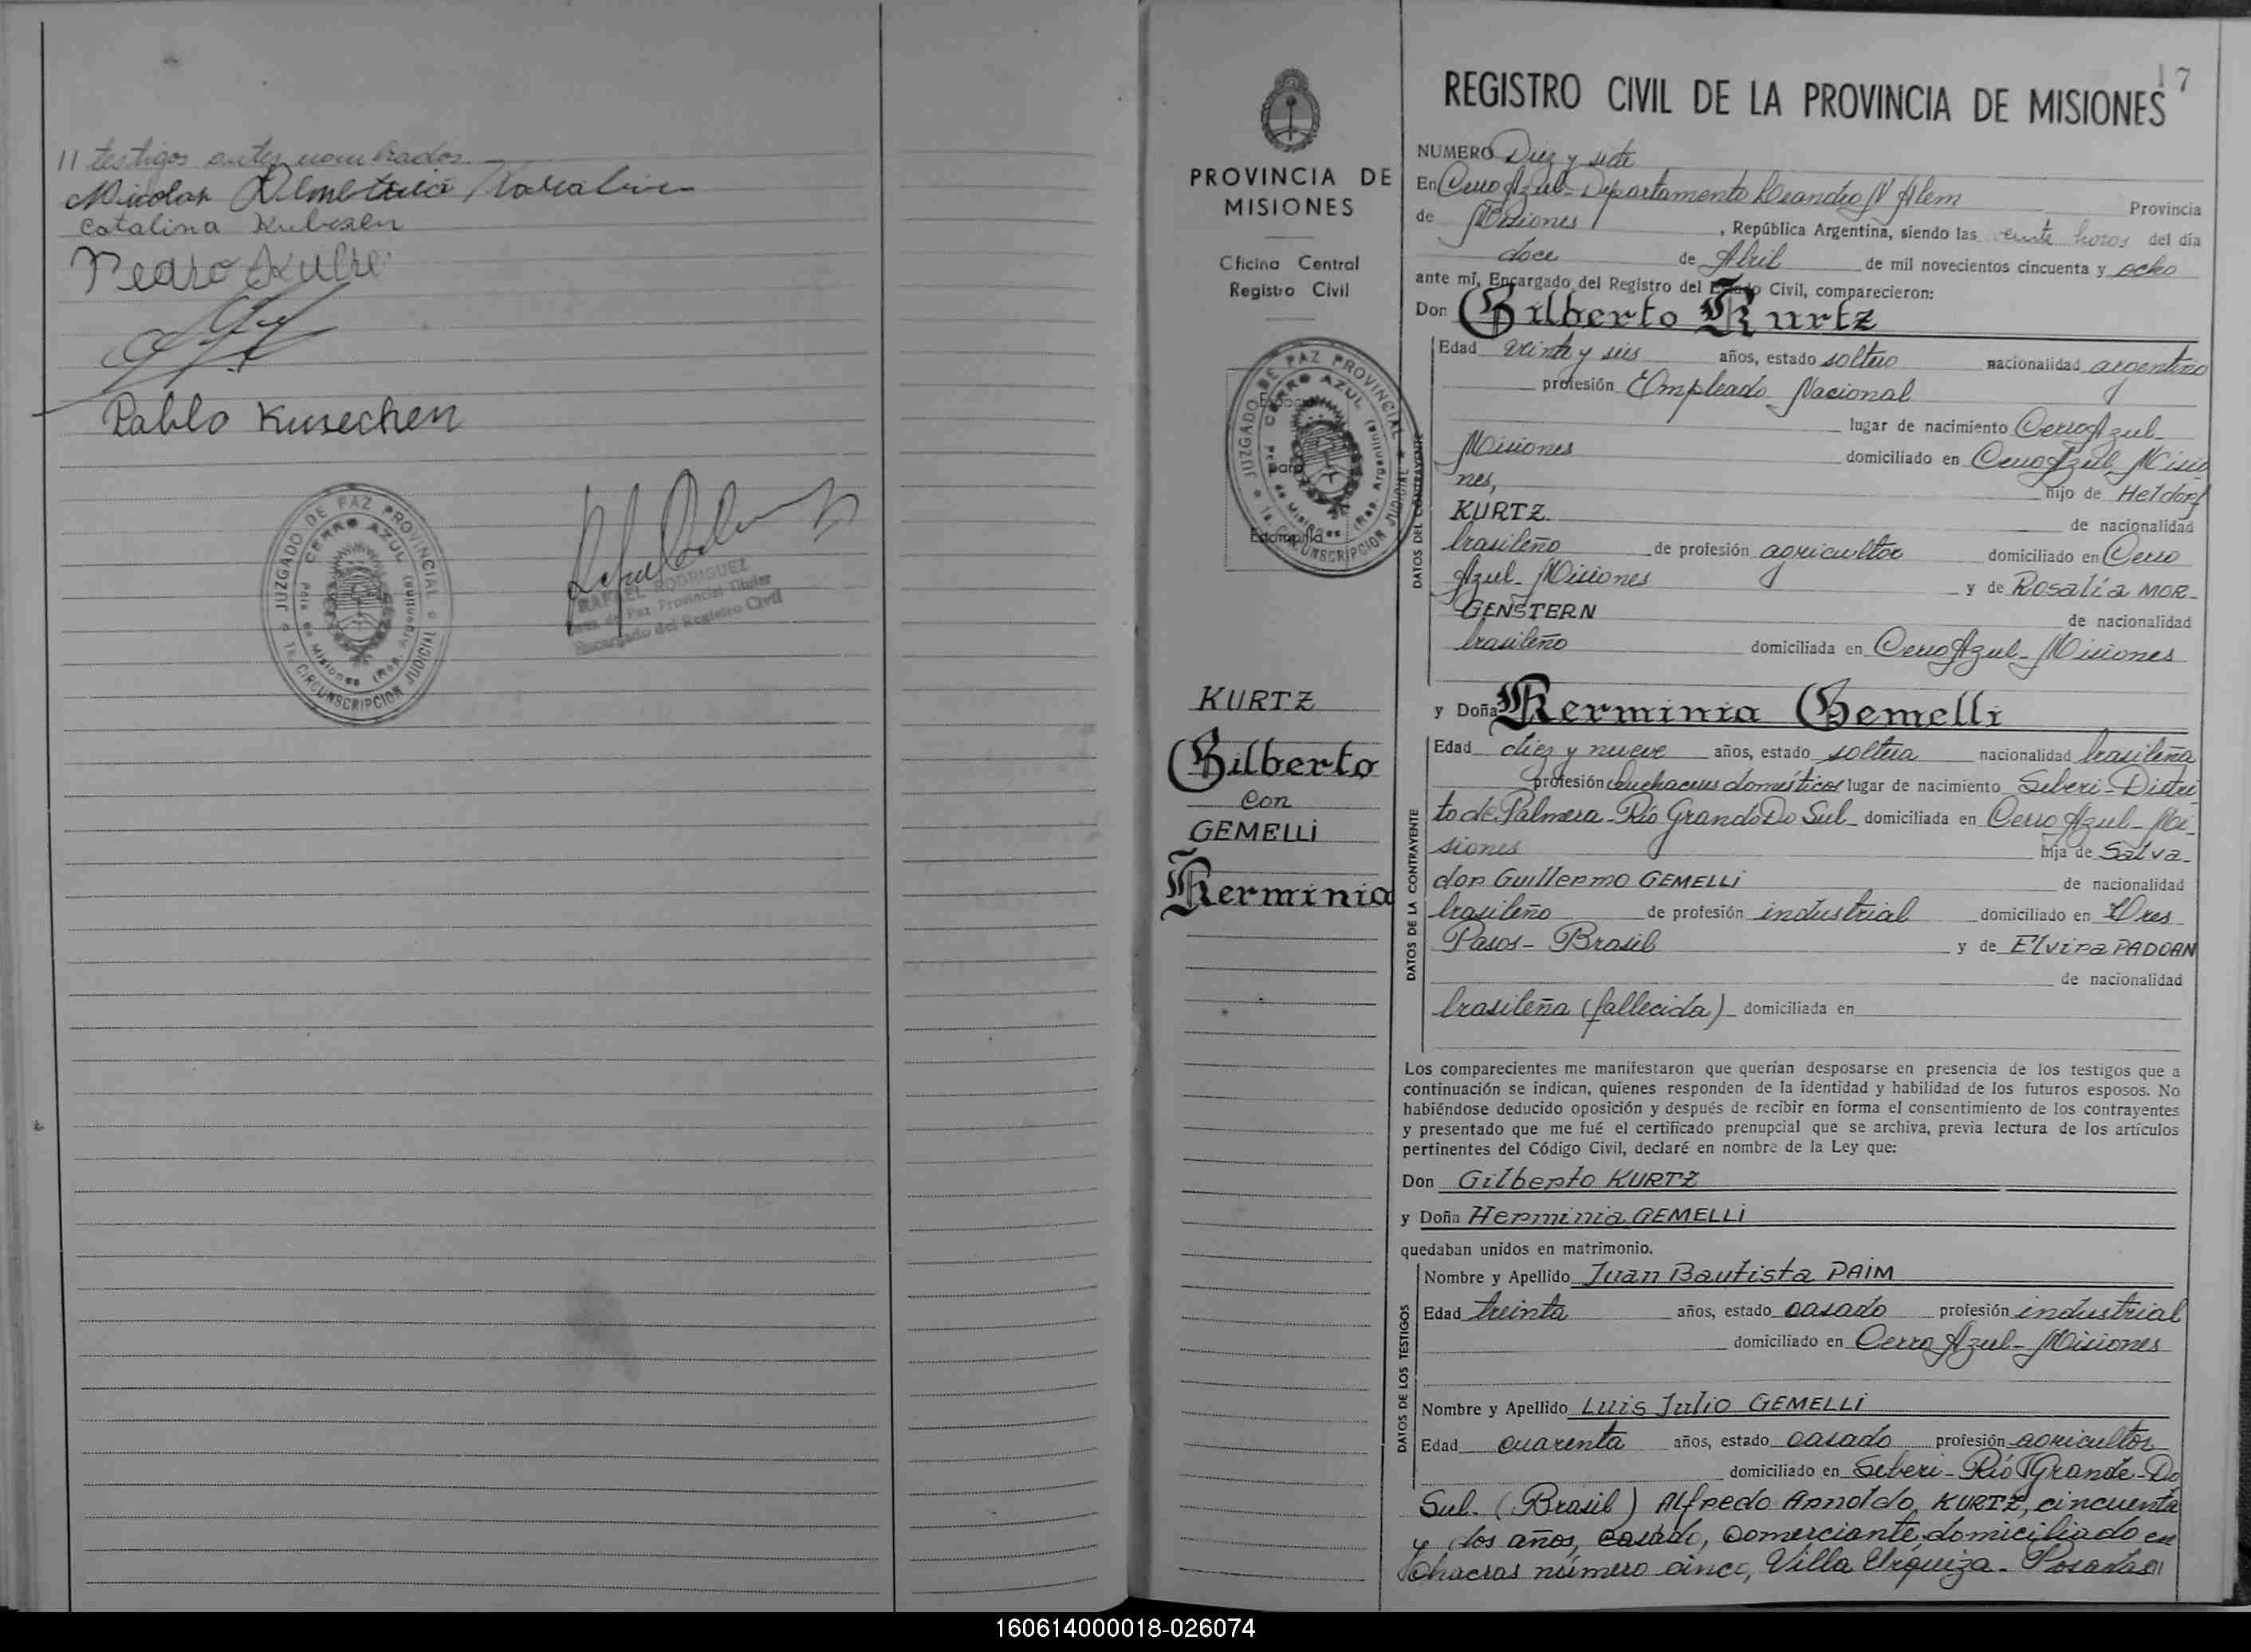 // testigos antes nombrados.
Nicolas Demetrio
Catalina Kubesen
Pedro
Pablo Kusechen
JUZGADO DE PAZ PROVINCIAL
CERRO AZUL
Pcia de Misiones (Rep. Argentina)
1a. CIRCUNSCRIPCION JUDICIAL
RAFAEL RODRIGUEZ
Juez de Paz Provincial Titular
Encargado del Registro Civil
PROVINCIA DE
MISIONES
Oficina Central
Registro Civil
JUZGADO DE PAZ PROVINCIAL
CERRO AZUL
Pcia de Misiones (Rep. Argentina)
1a. CIRCUNSCRIPCION JUDICIAL
Espacio
para
Estampilla
KURTZ
Gilberto
con
GEMELLI
Herminia
17
REGISTRO CIVIL DE LA PROVINCIA DE MISIONES
NUMERO Diez y siete
En Cerro Azul - Departamento Leandro N Alem Provincia
de Misiones , República Argentina, siendo las veinte horas del día
doce de Abril de mil novecientos cincuenta y ocho
ante mí, Encargado del Registro del Estado Civil, comparecieron:
Don Gilberto Kurtz
DATOS DEL CONTRAYENTE
Edad veinte y seis años, estado soltero nacionalidad argentino
profesión Empleado Nacional
lugar de nacimiento Cerro Azul-
Misiones domiciliado en Cerro Azul, Misio
nes, hijo de Heldorf
KURTZ. de nacionalidad
brasileño de profesión agricultor domiciliado en Cerro
Azul - Misiones y de Rosalía MOR-
GENSTERN de nacionalidad
brasileño domiciliada en Cerro Azul - Misiones
y Doña Herminia Gemelli
DATOS DE LA CONTRAYENTE
Edad diez y nueve años, estado soltera nacionalidad brasileña
profesión quehaceres domésticos lugar de nacimiento Seberi - Distri
to de Palmera - Río Grande Do Sul - domiciliada en Cerro Azul - Mi-
siones hija de Salva-
dor Guillermo GEMELLI de nacionalidad
brasileño de profesión industrial domiciliado en Tres
Pasos - Brasil y de Elvira PADOAN
de nacionalidad
brasileña (fallecida) domiciliada en
Los comparecientes me manifestaron que querían desposarse en presencia de los testigos que a
continuación se indican, quienes responden de la identidad y habilidad de los futuros esposos. No
habiéndose deducido oposición y después de recibir en forma el consentimiento de los contrayentes
y presentado que me fué el certificado prenupcial que se archiva, previa lectura de los artículos
pertinentes del Código Civil, declaré en nombre de la Ley que:
Don Gilberto KURTZ
y Doña Herminia GEMELLI
quedaban unidos en matrimonio.
DATOS DE LOS TESTIGOS
Nombre y Apellido Juan Bautista PAIM
Edad treinta años, estado casado profesión industrial
domiciliado en Cerro Azul - Misiones
Nombre y Apellido Luis Julio GEMELLI
Edad cuarenta años, estado casado profesión agricultor
domiciliado en Seberi - Río Grande - Do
Sul. (Brasil) Alfredo Arnoldo, KURTZ, cincuenta
y dos años, casado, comerciante, domiciliado en
Chacras número cinco, Villa Urquiza - Posadas //
160614000018-026074